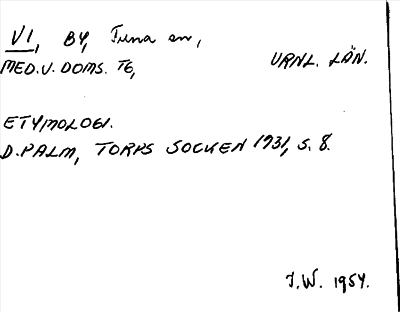 VI, BY, Tuna sn,
MED. V. DOMS. TG, VRNL. LÄN.
ETYMOLOGI.
D. PALM, TORPS SOCKEN 1931, S. 8.
J.W. 1954.